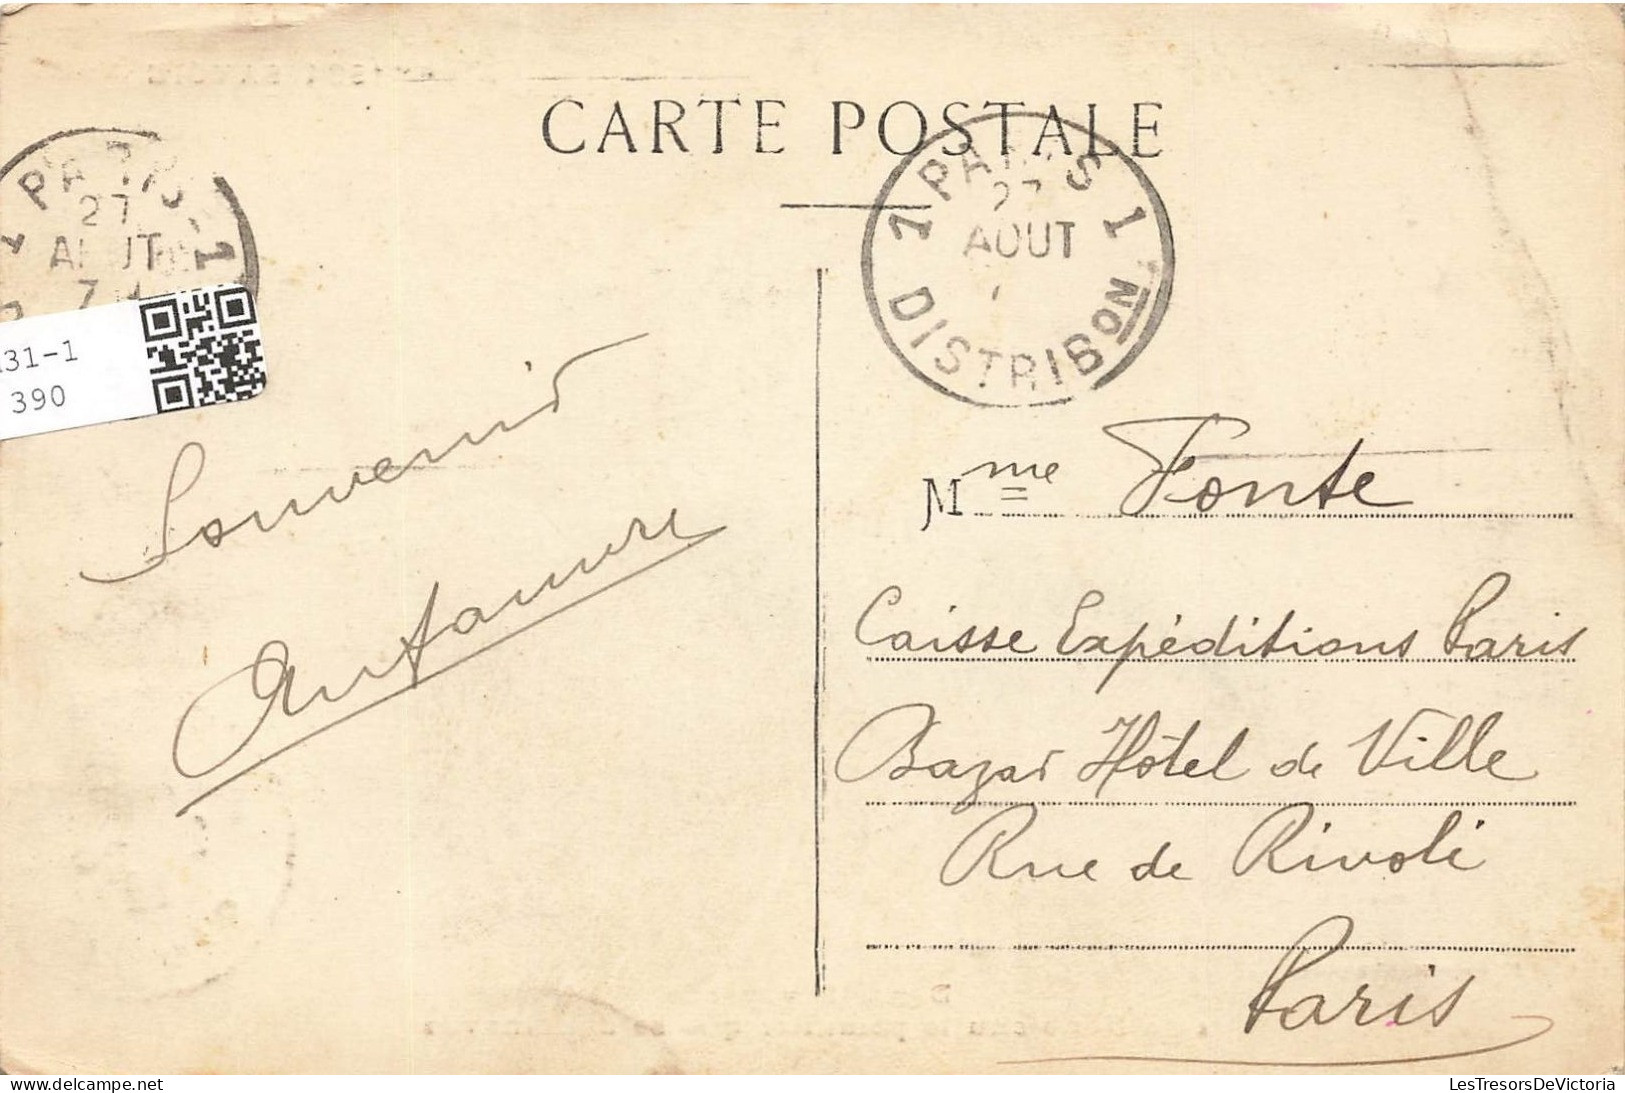 CARTE POSTALE
PARIS 1
27
AOUT
DISTRIBON
1
PARIS-1
27
AOUT
7
31-1
390
Souvenir
Mme Fonte
Caisse Expéditions Paris
Bazar Hôtel de Ville
Rue de Rivoli
Paris
LesTresorsDeVictoria